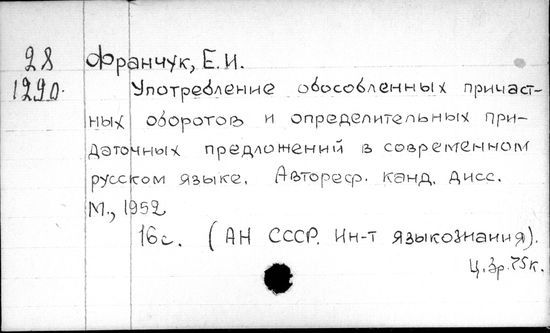 28 Франчук, Е.И.
1290. Употребление обособленных причаст-
ных оборотов и определительных при-
даточных предложений в современном
русском языке. Автореф. канд. дисс.
М., 1952
16с. (АН СССР. Ин-т языкознания).
Ц. Зр. 75к.